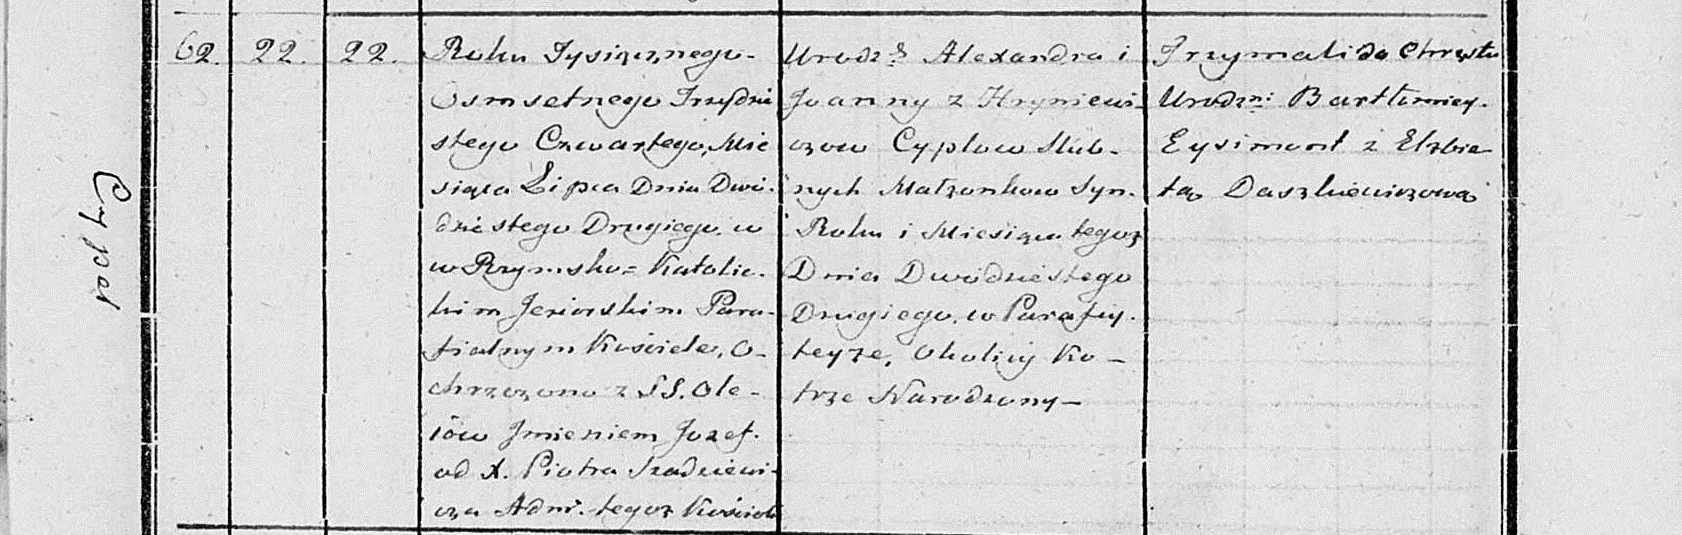 Cypel
62.
22.
22.
Roku Tysiącznego
Osmsetnego Trzydzie
stego Czwartego, Mie
siąca Lipca Dnia Dwu-
dziestego Drugiego. w
w Rzymsko=Katolic-
kim Jeziorskim Para-
fialnym Kościele, O-
chrzczono z SS. Ole-
iów Jmieniem Jozef.
od X. Piotra Szadziewi-
cza Adm. tegoż Kościoła
Urodz: Alexandra i
Joanny z Hryniewi-
czow Cyplow Slub-
nych Małżonkow Syn.
Roku i Miesiąca tegoż
Dnia Dwódziestego
Drugiego, w Parafij.
teyże, Okolicy Ko-
trze Narodzony—
Trzymali do Chrztu
Urodzni: Bartłomiey.
Eysimont z Elzbie
tą Daszkiewiczową